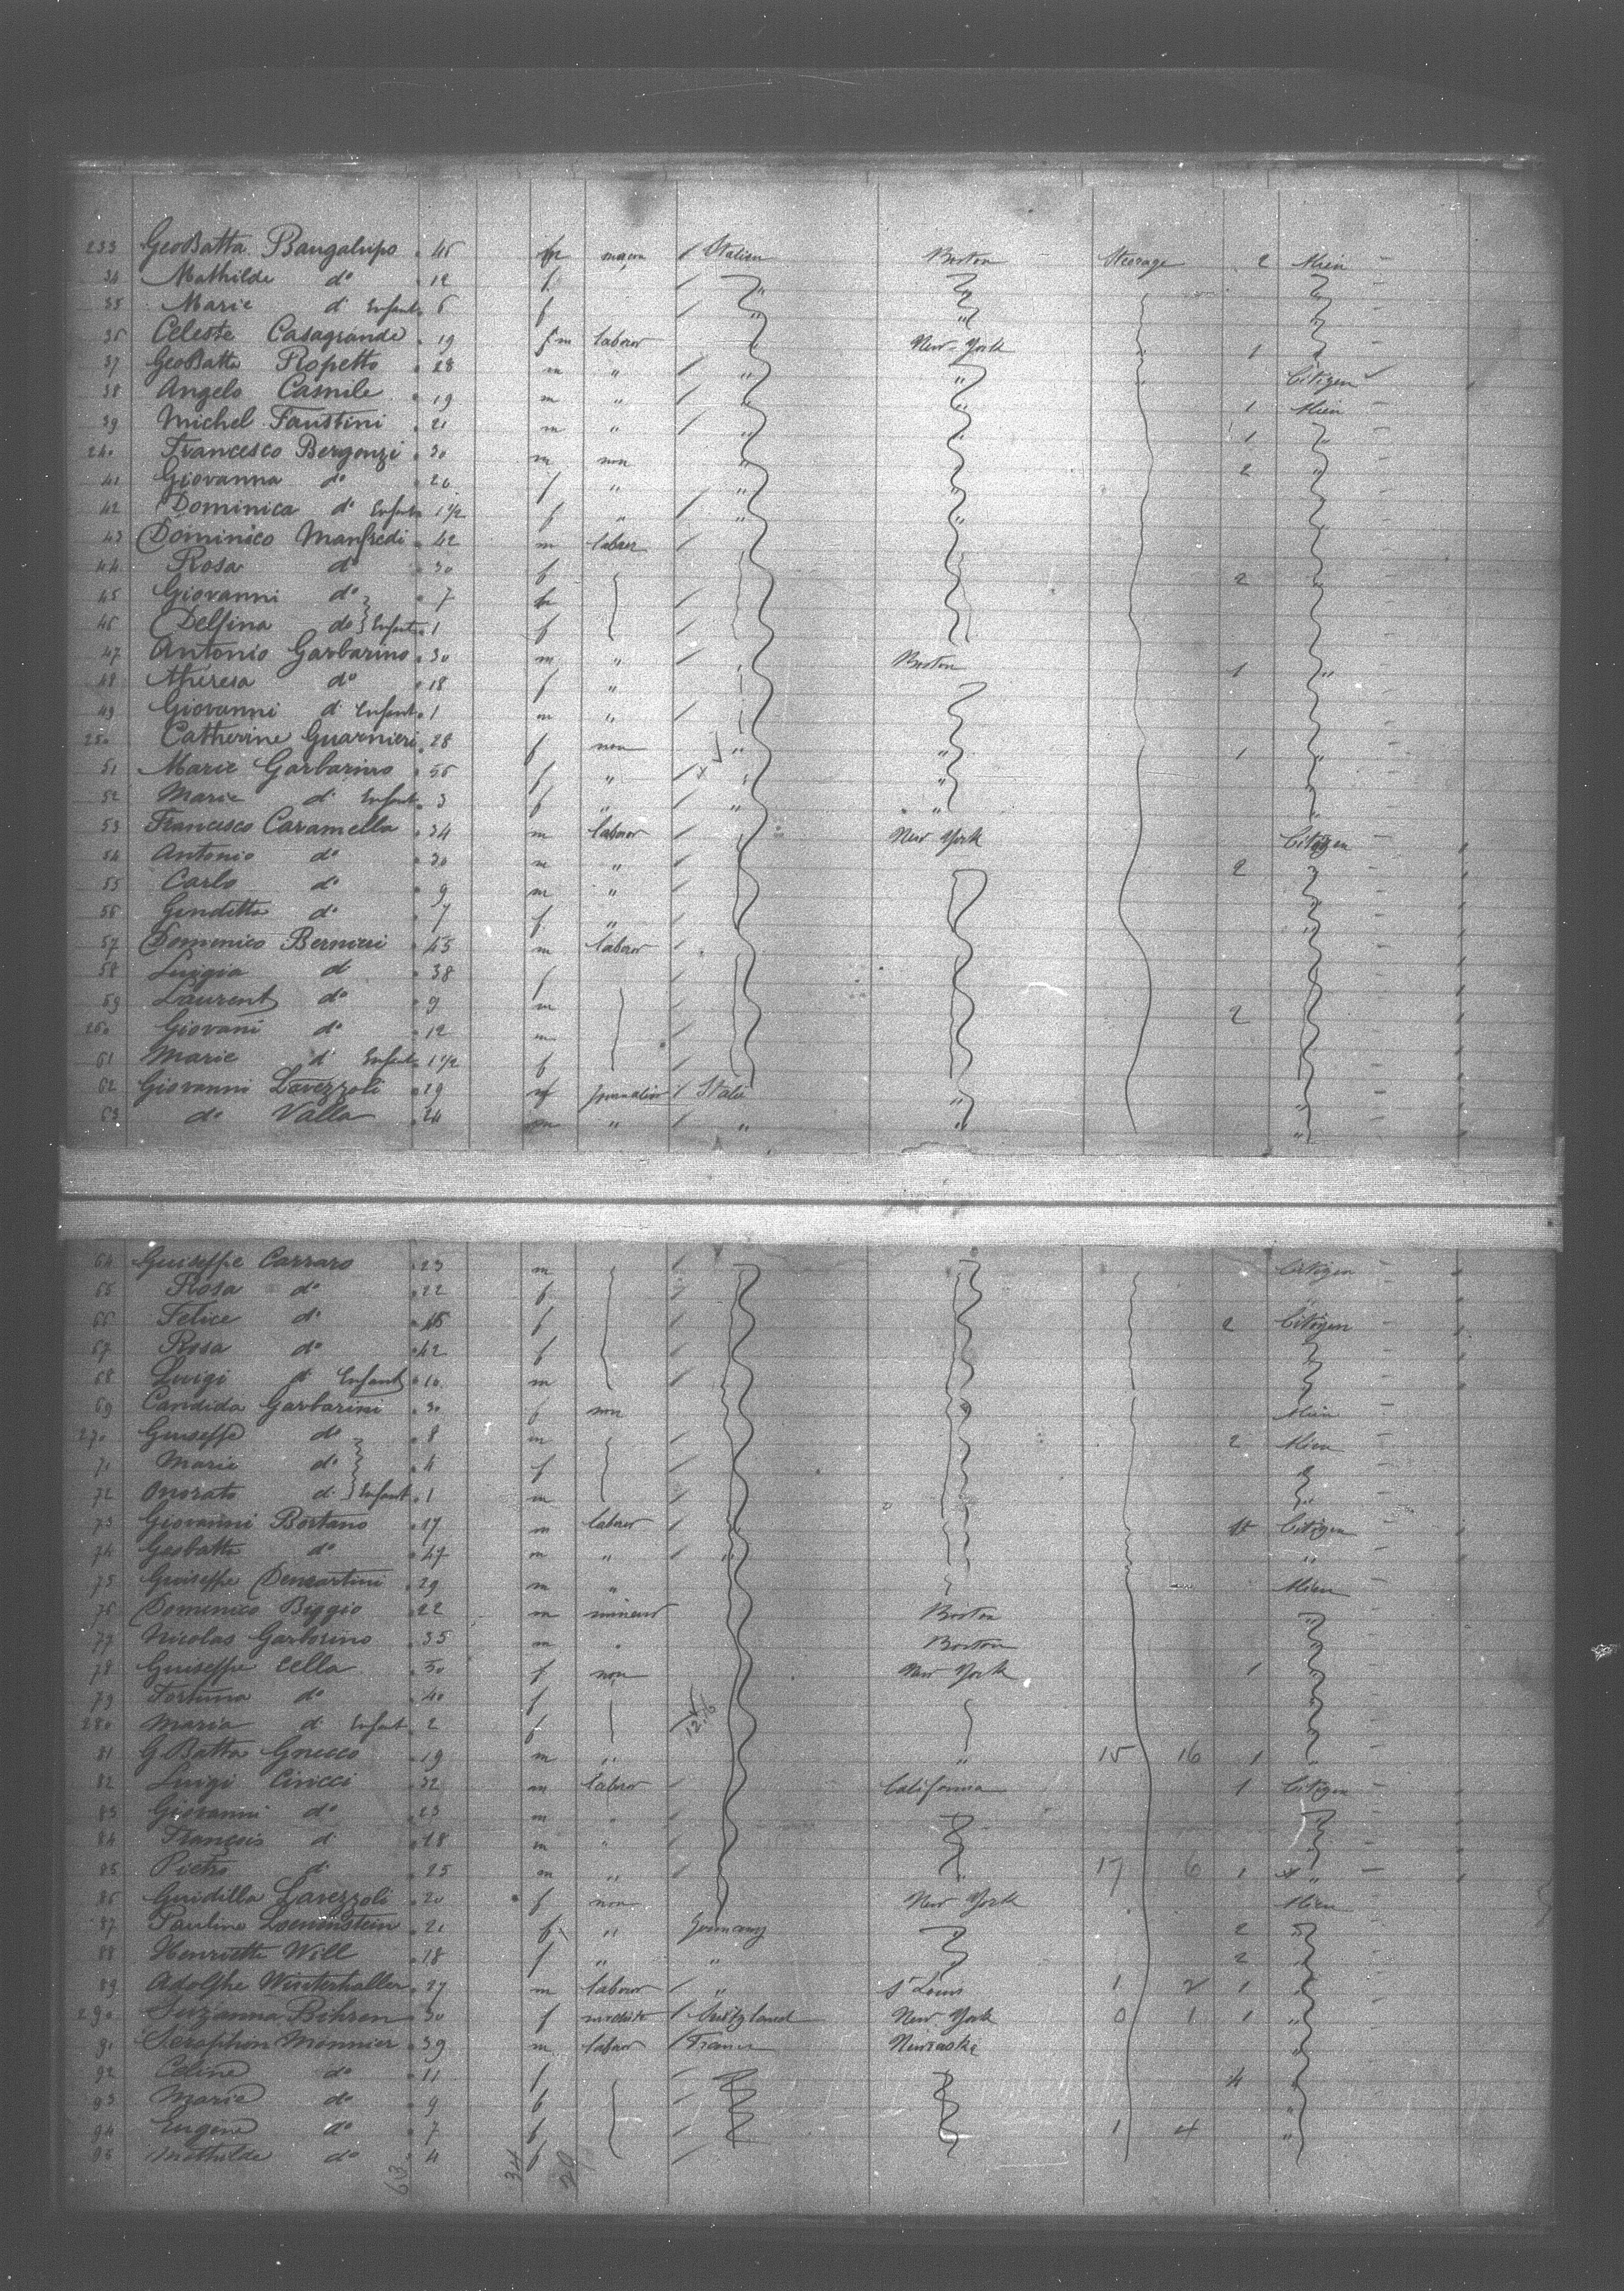 233 GeoBatta Bangalupo 45 m maçon / Italien Boston Steerage 2 Alien
34 Mathilde do 12 f /
35 Marie d Enfant 6 f / "
36 Celeste Casagrande 19 f m labour New-York 1
37 GeoBatta Ropetto 28 m " / " " Citizen
38 Angelo Camile 19 m " / " " 1 Alien
39 Michel Faustini 21 m " / " 1
240 Francesco Bergonzi 30 m non " 2 "
41 Giovanna do 26 f " "
42 Dominica do Enfant 1 1/2 f " / " "
43 Dominico Manfredi 42 m labour /
44 Rosa do 30 f 2
45 Giovanni do 7 m /
46 Delfina do Enfant 1 f /
47 Antonio Garbarino 30 m " / Boston 1 "
48 Théresa do 18 f "
49 Giovanni d Enfant 1 m " /
250 Catherine Guarnieri 28 f non " " 1 "
51 Marie Garbarino 56 f " / x "
52 Marie d Enfant 3 f " / " "
53 Francesco Caramella 34 m labour / New York Citizen
54 Antonio do 30 m " / 2
55 Carlo do 9 m " /
56 Genditta do 7 f "
57 Domenico Bernieri 45 m labour /
58 Luigia d 38 f
59 Laurent do 9 m / 2
260 Giovani do 12 m /
61 Marie d Enfant 1 1/2 f /
62 Giovanni Lavezzoli 29 m / Itali " "
63 do Valla 24 m " / " " "
64 Guiseppe Carraro 23 m / Citizen
65 Rosa do 22 f
66 Felice do f / 2 Citizen
67 Rosa do 42 f /
68 Luigi d Enfant 10 m /
69 Candida Garbarini 30 f non Alien
270 Guiseppe do 8 m / 2 Alien
71 Marie do 4 f /
72 Onorato d Enfant 1 m /
73 Giovanni Bortano 17 m labour / Citizen
74 Geobatta do 47 m " / "
75 Guiseppe Demartini 29 m " Alien
76 Domenico Biggio 22 m mineur Boston
77 Nicolas Garbarino 35 m " Boston
78 Guiseppe Cella 50 f non New York 1
79 Fortuna do 40 f
280 Maria d Enfant 2 f
81 G Batta Gnecco 19 m " " 15 16 1 "
82 Luigi Ciricci 32 m labour / California 1 Citizen
83 Giovanni do 23 m
84 François d 28 m "
85 Pietro d 25 m " / " 17 6 1 "
86 Guidilla Lavezzoli 20 f non New York Alien
87 Pauline Loewinstein 21 f " Germany 2
88 Henriette Will 18 f " " 2
89 Adolphe Winterhaller 27 m labour / " St Louis 1 2 1
290 Suzanna Bihren 30 f modiste / Switzland New York 0 1 1 "
91 Seraphim Monnier 39 m labour / France
92 Celine do 11 f / 4
93 Marie do 9 f / "
94 Eugene do 7 f / 1 4 "
95 Mathilde do 4 f /
63 34 29